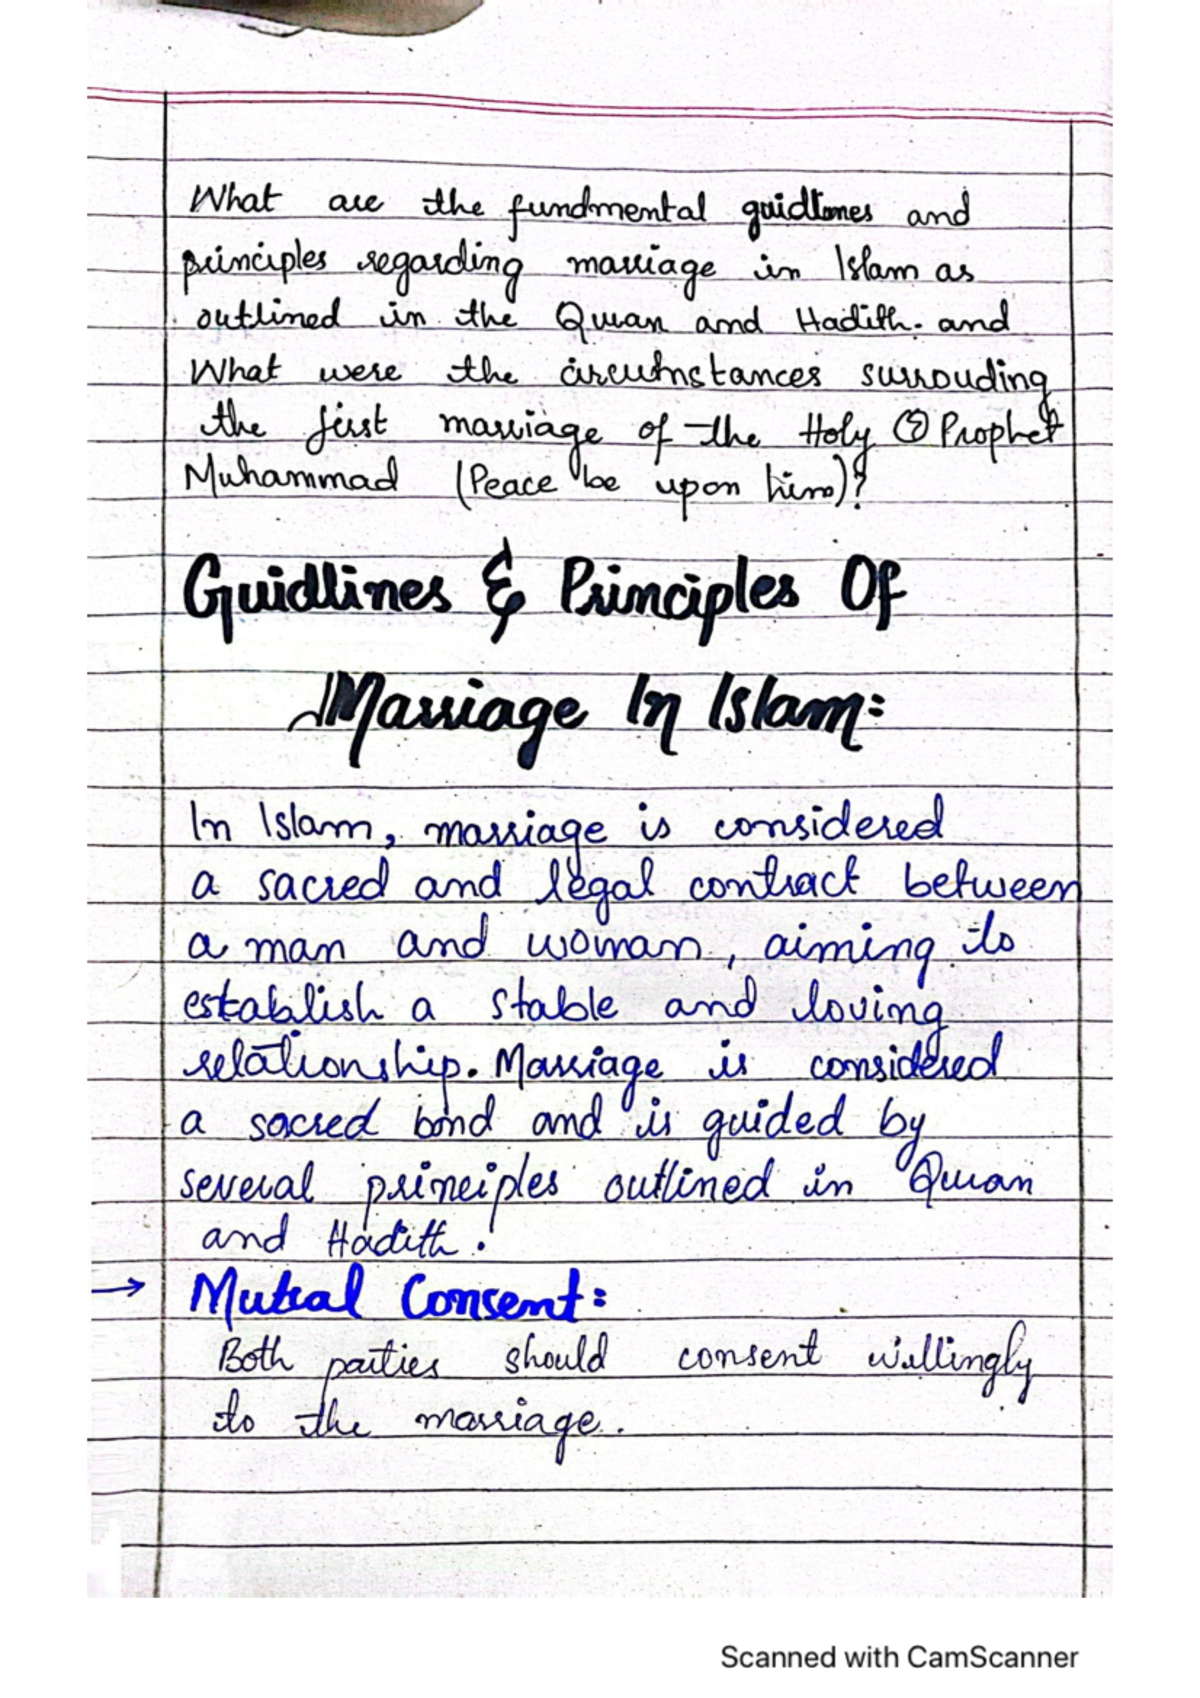 What are the fundmental guidlines and
principles regarding marriage in Islam as
outlined in the Quran and Hadith. and
What were the circumstances surrouding
the first marriage of the Holy Prophet
Muhammad (Peace be upon him)?
Guidlines & Principles Of
Marriage In Islam:
In Islam, marriage is considered
a sacred and legal contract between
a man and woman, aiming to
establish a stable and loving
relationship. Marriage is considered
a sacred bond and is guided by
several principles outlined in Quran
and Hadith.
→ Mutual Consent:
Both parties should consent willingly
to the marriage.
Scanned with CamScanner